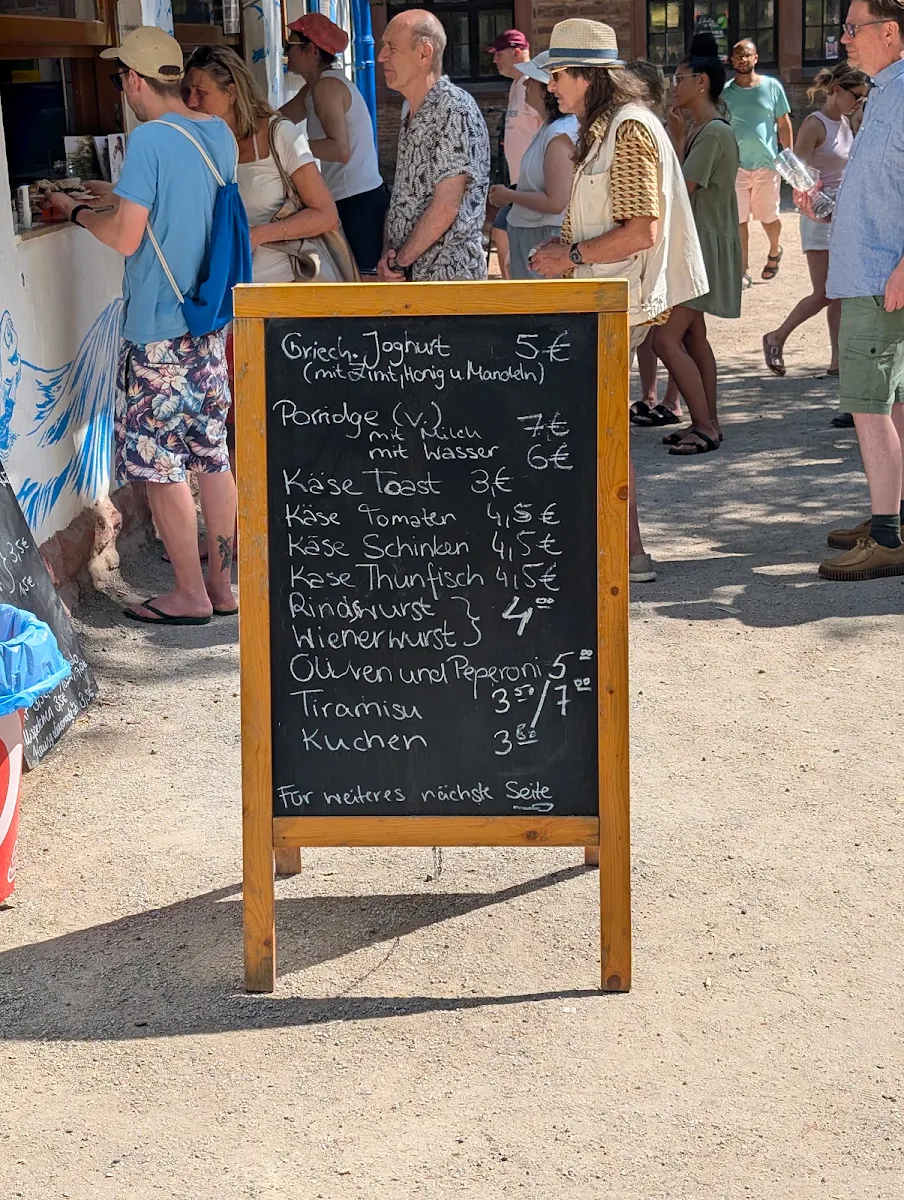 Griech. Joghurt 5€
(mit Zimt, Honig u. Mandeln)
Porridge (V.)
mit Milch 7€
mit Wasser 6€
Käse Toast 3,€
Käse Tomaten 4,5€
Käse Schinken 4,5€
Käse Thunfisch 4,5€
Rindswurst } 4⁰⁰
Wienerwurst
Oliven und Peperoni 5⁰⁰
Tiramisu 3⁵⁰/7⁰⁰
Kuchen 3⁸⁰
Für weiteres nächste Seite
3,5€